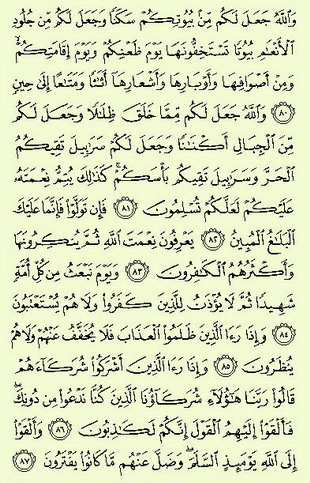 وَٱللَّهُ جَعَلَ لَكُم مِّنۢ بُيُوتِكُمْ سَكَنًا وَجَعَلَ لَكُم مِّن جُلُودِ
ٱلْأَنْعَٰمِ بُيُوتًا تَسْتَخِفُّونَهَا يَوْمَ ظَعْنِكُمْ وَيَوْمَ إِقَامَتِكُمْ ۙ
وَمِنْ أَصْوَافِهَا وَأَوْبَارِهَا وَأَشْعَارِهَآ أَثَٰثًا وَمَتَٰعًا إِلَىٰ حِينٍ
﴿٨٠﴾ وَٱللَّهُ جَعَلَ لَكُم مِّمَّا خَلَقَ ظِلَٰلًا وَجَعَلَ لَكُم
مِّنَ ٱلْجِبَالِ أَكْنَٰنًا وَجَعَلَ لَكُمْ سَرَٰبِيلَ تَقِيكُمُ
ٱلْحَرَّ وَسَرَٰبِيلَ تَقِيكُم بَأْسَكُمْ ۚ كَذَٰلِكَ يُتِمُّ نِعْمَتَهُۥ
عَلَيْكُمْ لَعَلَّكُمْ تُسْلِمُونَ ﴿٨١﴾ فَإِن تَوَلَّوْا۟ فَإِنَّمَا عَلَيْكَ
ٱلْبَلَٰغُ ٱلْمُبِينُ ﴿٨٢﴾ يَعْرِفُونَ نِعْمَتَ ٱللَّهِ ثُمَّ يُنكِرُونَهَا
وَأَكْثَرُهُمُ ٱلْكَٰفِرُونَ ﴿٨٣﴾ وَيَوْمَ نَبْعَثُ مِن كُلِّ أُمَّةٍ
شَهِيدًا ثُمَّ لَا يُؤْذَنُ لِلَّذِينَ كَفَرُوا۟ وَلَا هُمْ يُسْتَعْتَبُونَ
﴿٨٤﴾ وَإِذَا رَءَا ٱلَّذِينَ ظَلَمُوا۟ ٱلْعَذَابَ فَلَا يُخَفَّفُ عَنْهُمْ وَلَا هُمْ
يُنظَرُونَ ﴿٨٥﴾ وَإِذَا رَءَا ٱلَّذِينَ أَشْرَكُوا۟ شُرَكَآءَهُمْ
قَالُوا۟ رَبَّنَا هَٰٓؤُلَآءِ شُرَكَآؤُنَا ٱلَّذِينَ كُنَّا نَدْعُوا۟ مِن دُونِكَ ۖ
فَأَلْقَوْا۟ إِلَيْهِمُ ٱلْقَوْلَ إِنَّكُمْ لَكَٰذِبُونَ ﴿٨٦﴾ وَأَلْقَوْا۟
إِلَى ٱللَّهِ يَوْمَئِذٍ ٱلسَّلَمَ ۖ وَضَلَّ عَنْهُم مَّا كَانُوا۟ يَفْتَرُونَ ﴿٨٧﴾